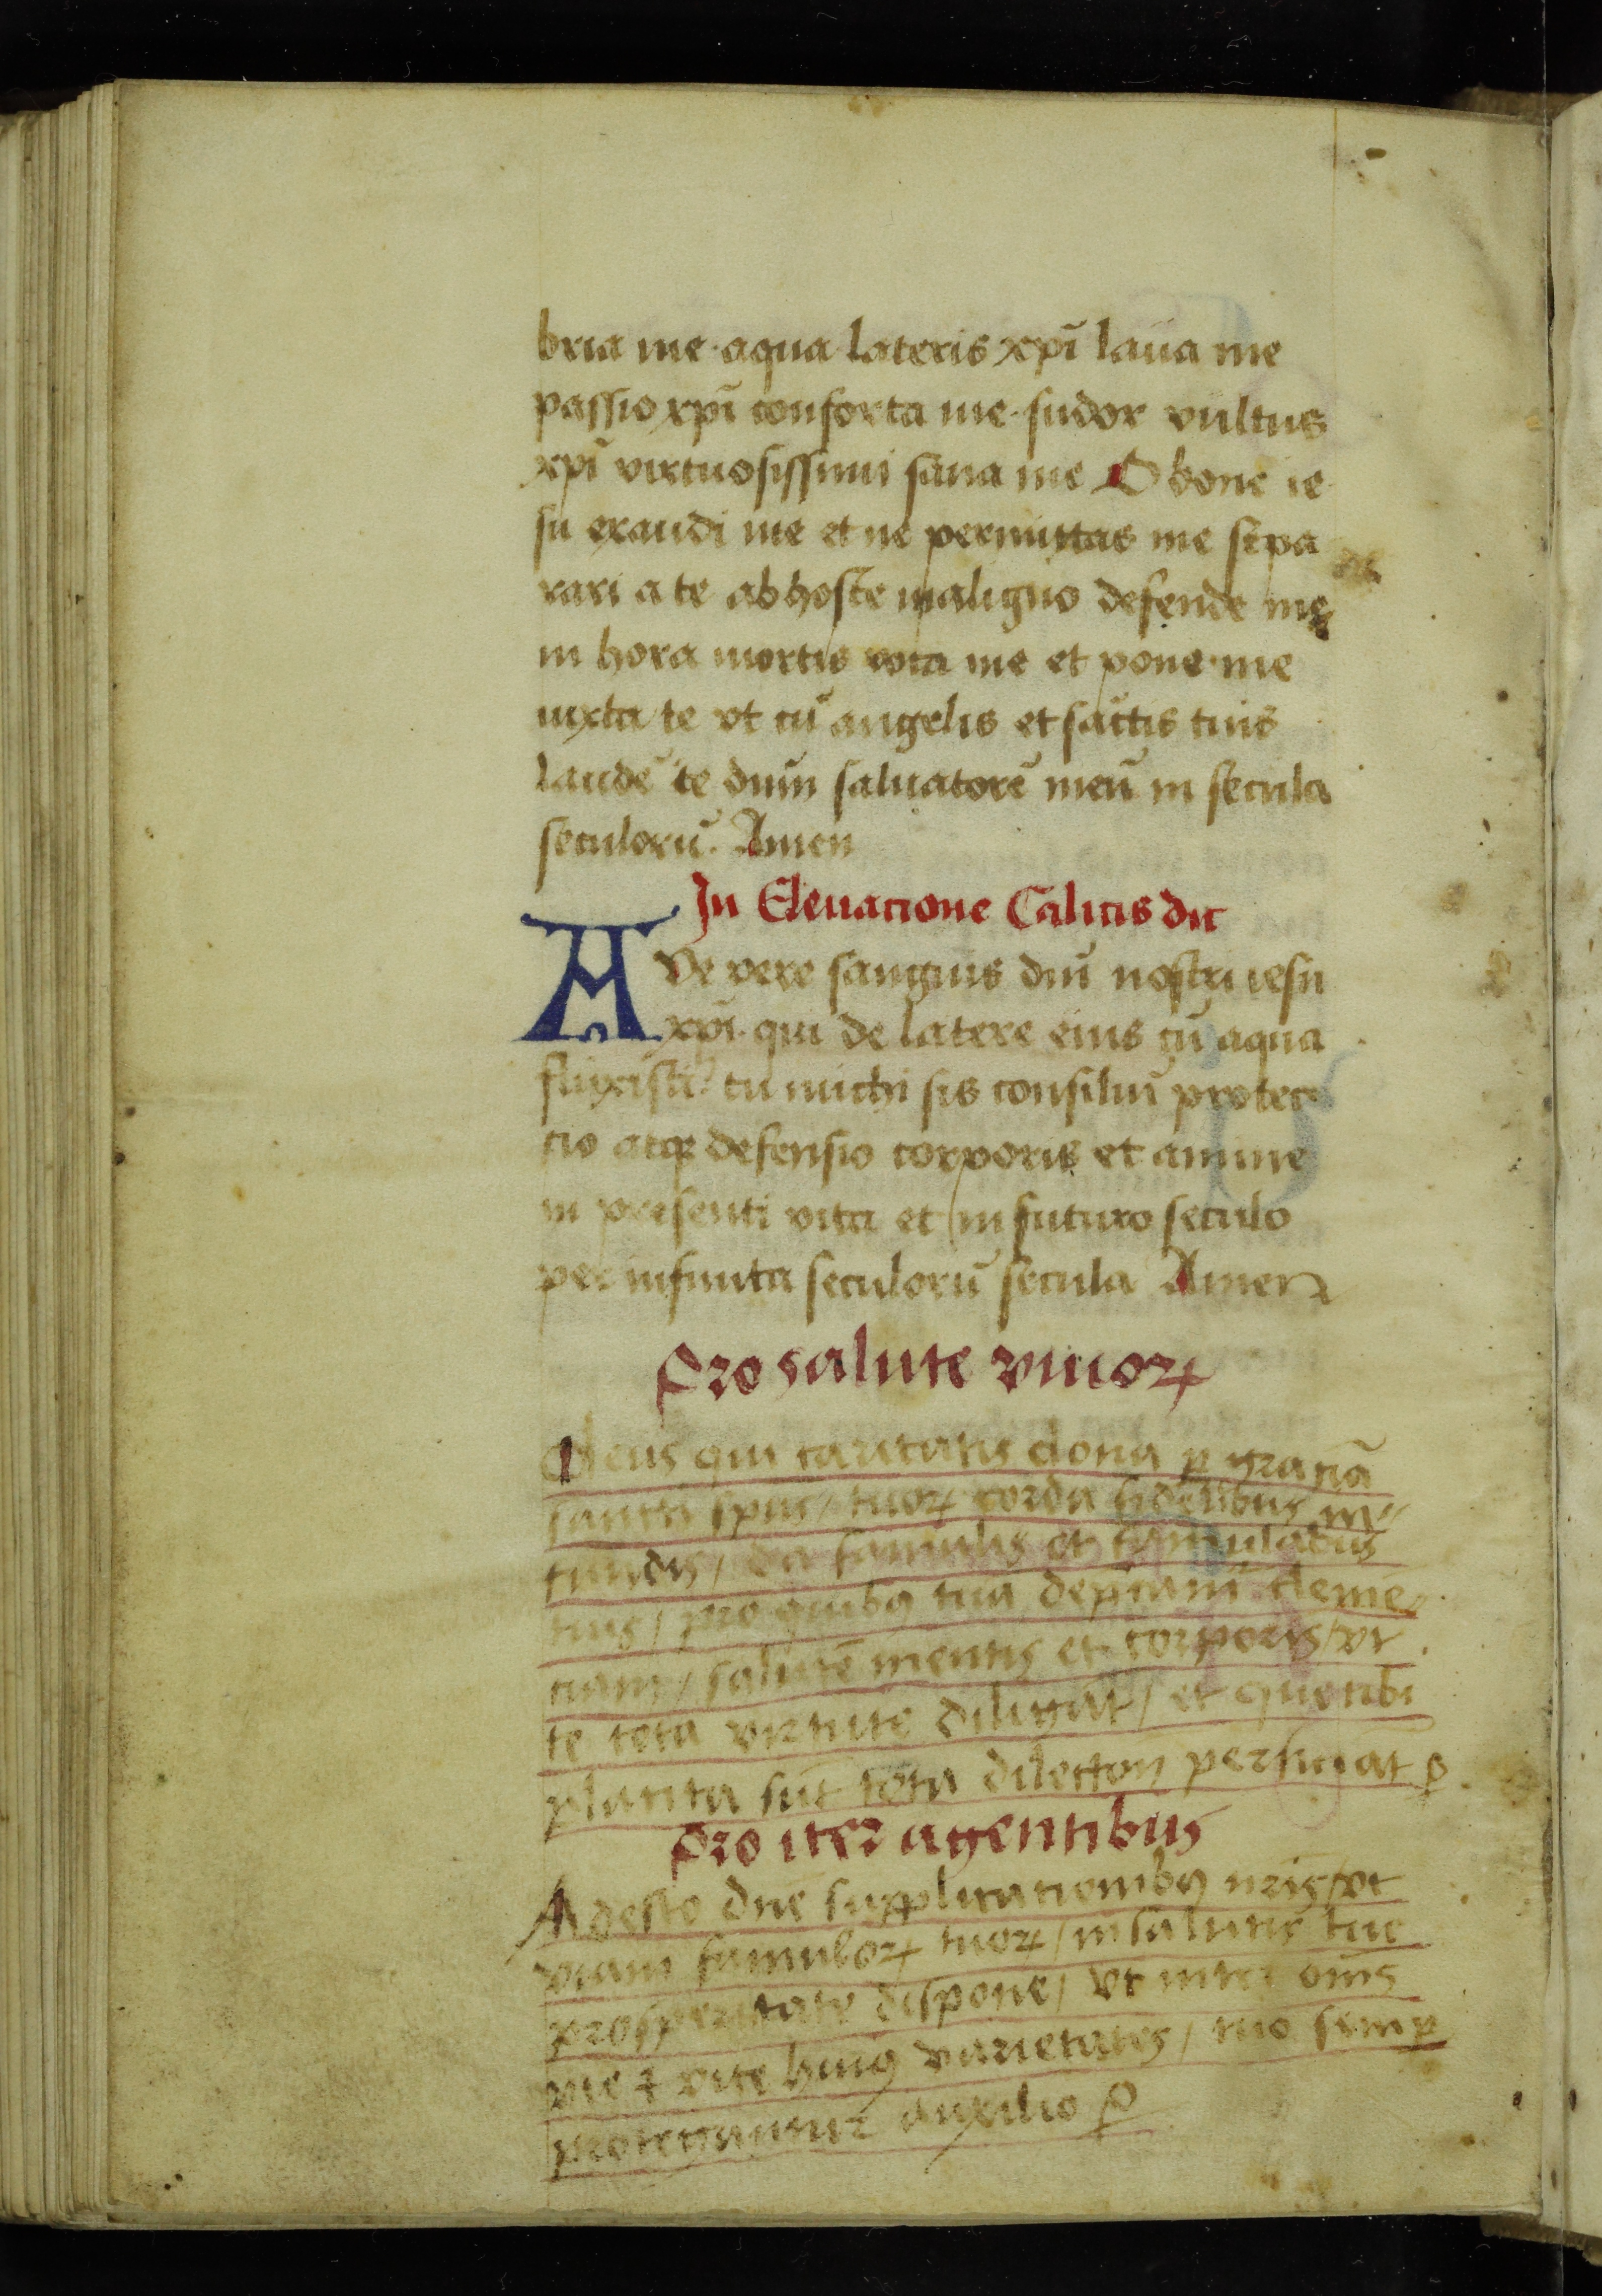 bria me · aqua lateris xpĩ laua me
passio xpĩ conforta me · sudor vultus
xpĩ virtuosissimi sana me O bone ie
su exaudi me et ne permittas me sepa
rari a te ab hoste maligno defende me
in hora mortis voca me et pone me
iuxta te vt cũ angelis et sãctis tuis
laudẽ te dñm saluatorẽ meũ in secula
seculorũ. Amen
In Eleuacione Calicis dic
AVe vere sanguis dñi nostri iesu
xpĩ · qui de latere eius cũ aqua
fluxisti · tu michi sis consiliũ protec
cio atqꝫ defensio corporis et anime
in presenti vita et in futuro seculo
per infinita seculorũ secula Amen
Pro salute viuoꝝ
Deus qui caritatis dona ꝑ graciã
sancti spũs / tuoꝝ cordi fidelibus in-
fundis / da famulis et famulabus
tuis / pro quibꝰ tuã deprecamur clemẽ-
ciam / salutẽ mentis et corporis / vt
te tota virtute diligãt / et que tibi
placita sũt tota dilectiõn perficiãt ꝑ
Pro iter agentibus
Adesto dñe supplicacionibꝰ nrĩs / vt
viam famuloꝝ tuoꝝ / in salutis tue
prosperitate dispone / vt inter oms
vie ⁊ vite huiꝰ varietates / tuo semꝑ
protegantur auxilio ꝑ